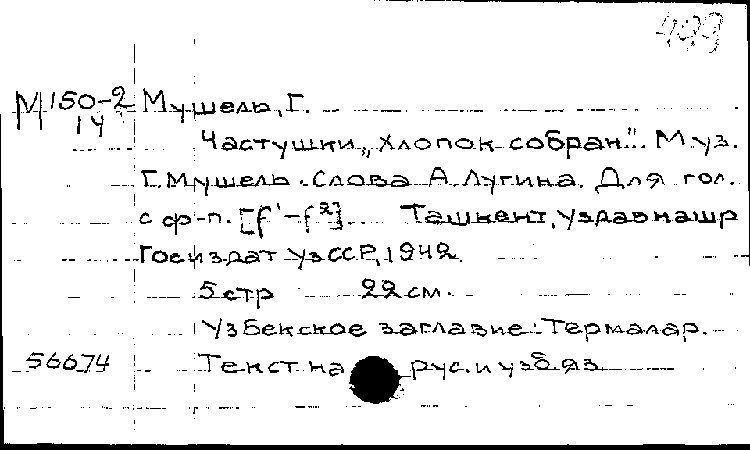 499
М 150-2 Мушель, Г.
14
Частушки „Хлопок собран". Муз.
Г. Мушель. Слова А. Лугина. Для гол.
с ф-п. [f¹-f²] Ташкент, Уздавнашр
Госиздат УзССР, 1942
5 стр 22 см.
Узбекское заглавие: Термалар.
56674 Текст на рус. и узб. яз.